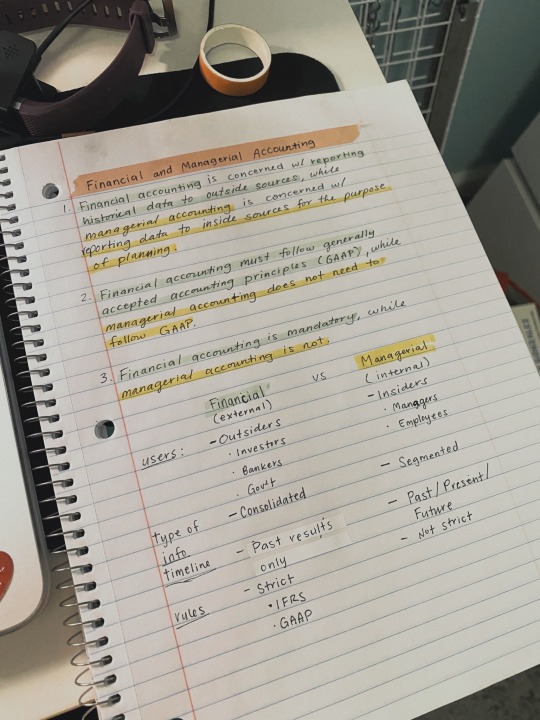 Financial and Managerial Accounting
1. Financial accounting is concerned w/ reporting
historical data to outside sources, while
managerial accounting is concerned w/
reporting data to inside sources for the purpose
of planning.
2. Financial accounting must follow generally
accepted accounting principles (GAAP), while
managerial accounting does not need to
follow GAAP.
3. Financial accounting is mandatory, while
managerial accounting is not.
Financial vs Managerial
(external) (internal)
users: - Outsiders - Insiders
· Investors · Managers
· Bankers · Employees
· Gov't
type of - Consolidated - Segmented
info
timeline - Past results - Past/Present/
only Future
rules - Strict - Not strict
· IFRS
· GAAP